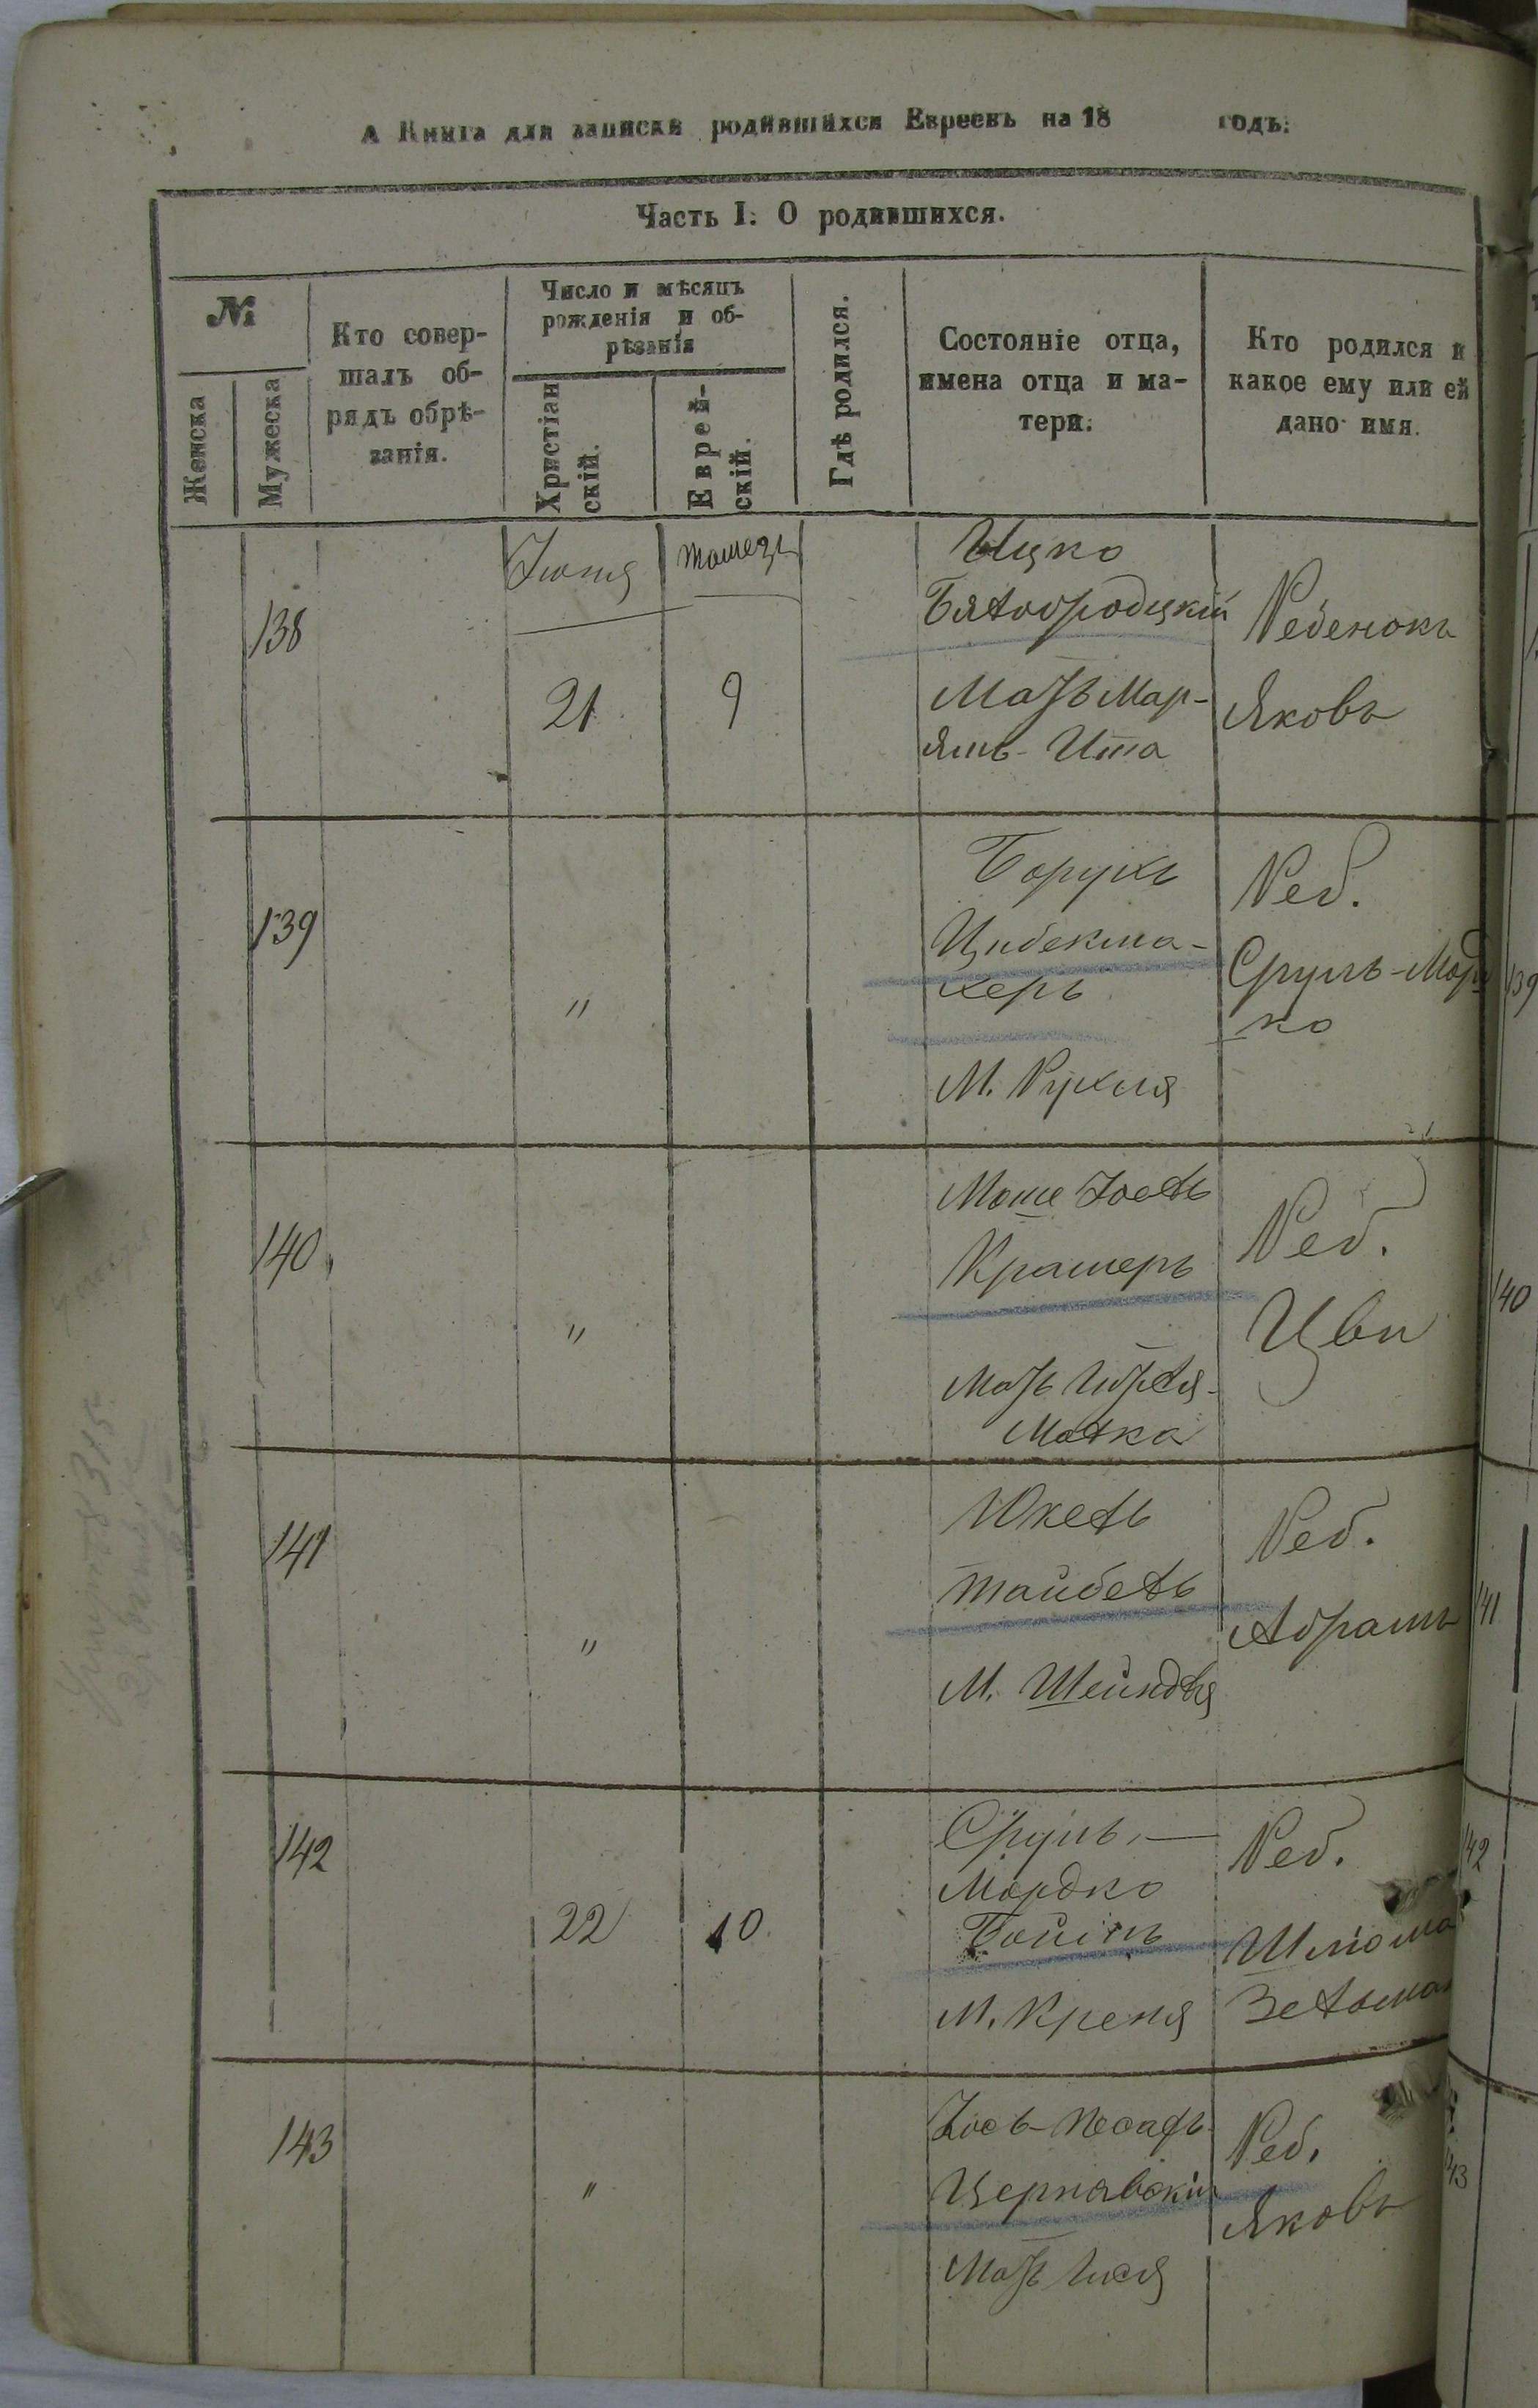 А Книга для записки родившихся Евреевъ на 18 годъ.
Часть I. О родившихся.
№
Женска
Мужеска
Кто совер-
шалъ об-
рядъ обрѣ-
занія.
Число и мѣсяцъ
рожденія и об-
рѣзанія
Христіан
скій.
Еврей-
скій.
Гдѣ родился.
Состояніе отца,
имена отца и ма-
тери.
Кто родился и
какое ему или ей
дано имя.
138
21
9
Ицко
Мать Мар-
ямъ-Ита
Ребенокъ
Яковъ
139
"
Борухъ
Цибекма-
херъ
М. Рухля
Реб.
Сруль-Мор
ко
140
"
Моше Іосель
Крамеръ
Мать
Малка
Реб.
Цви
141
"
Юкель
Тайбель
М. Шейндля
Реб.
Абрамъ
142
22
10
Сруль-
Мордко
М. Креня
Реб.
Шліома
143
"
Іось-
Чернявскій
Мать
Реб.
Яковъ
139
140
141
142
43